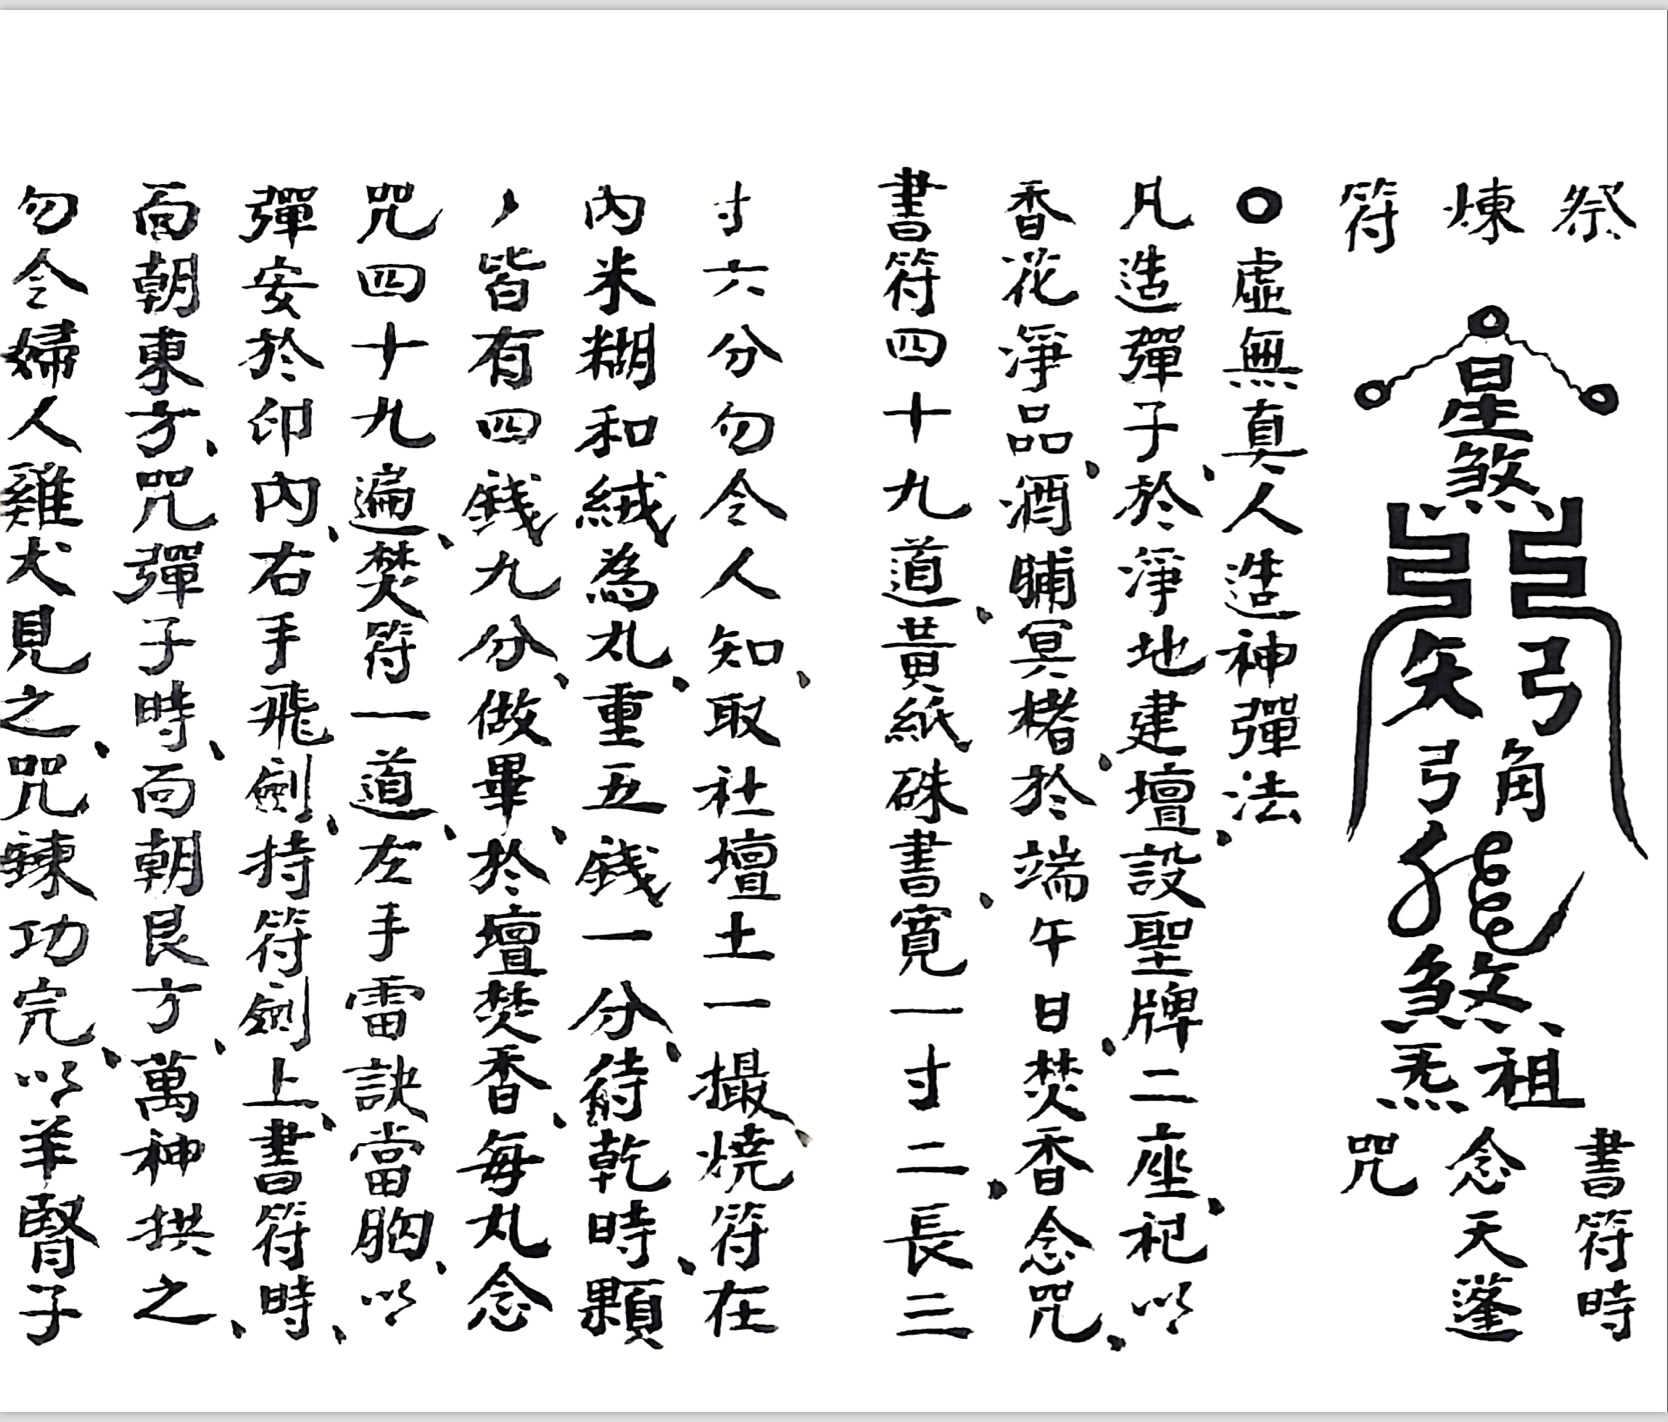 祭煉符
星煞
弓矢
角弓
煞
祖炁
書符時
念天蓬
咒
○虛無真人造神彈法
凡造彈子、於淨地建壇、設聖牌二座、祀以
香花淨品、酒脯冥楮、於端午日、焚香念咒、
書符四十九道、黃紙硃書、寬一寸二、長三
寸六分勿令人知、取社壇土一撮、燒符在
內米糊和絨為丸、重五錢一分、待乾時、顆
，皆有四錢九分、做畢、於壇焚香、每丸念
咒四十九遍、焚符一道、左手雷訣當胸、以
彈安於印內、右手飛劍、持符劍上、書符時、
面朝東方、咒彈子時、面朝艮方、萬神拱之、
勿令婦人雞犬見之、咒鍊功完、以羊腎子